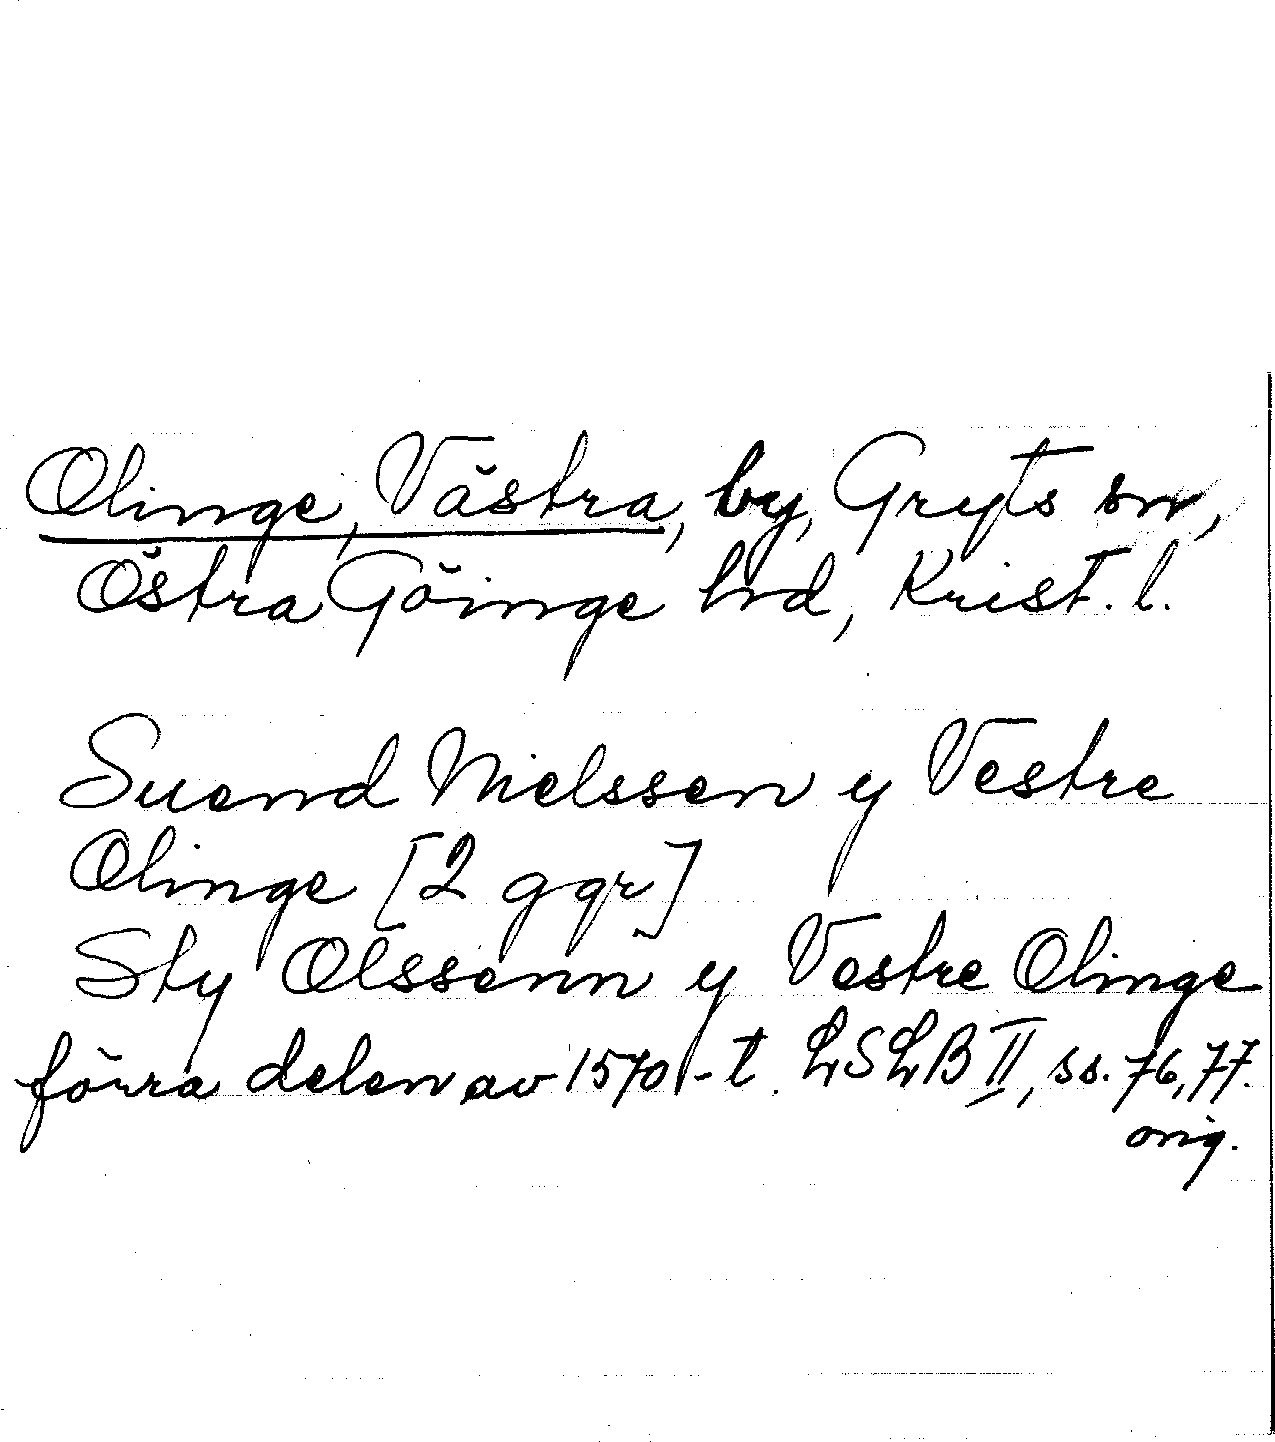 Olinge, Västra, by, Gryts sn,
Östra Göinge hrd, Krist. l.
Suend Nielssen y Vestre
Olinge [2 ggr]
Sty Olssenn y Vestre Olinge
förra delen av 1570-t. LSLB II, ss. 76, 77.
orig.